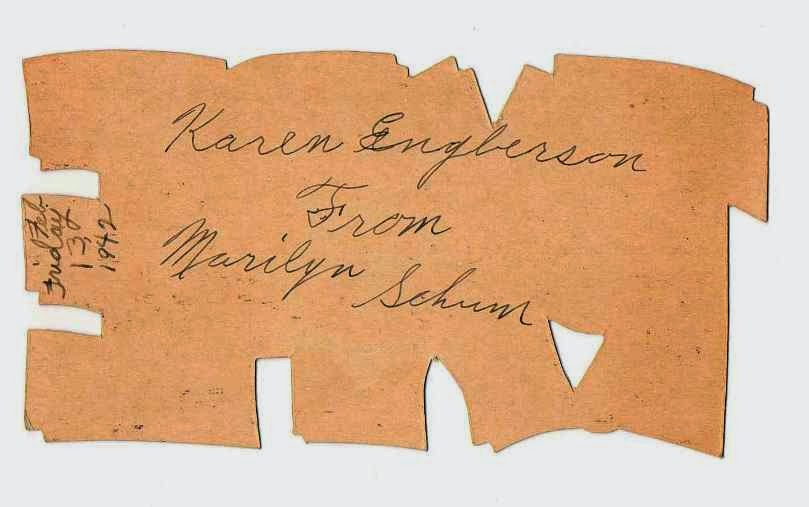 Karen Engberson
From
Marilyn Schum
Friday Feb.
13,
1942